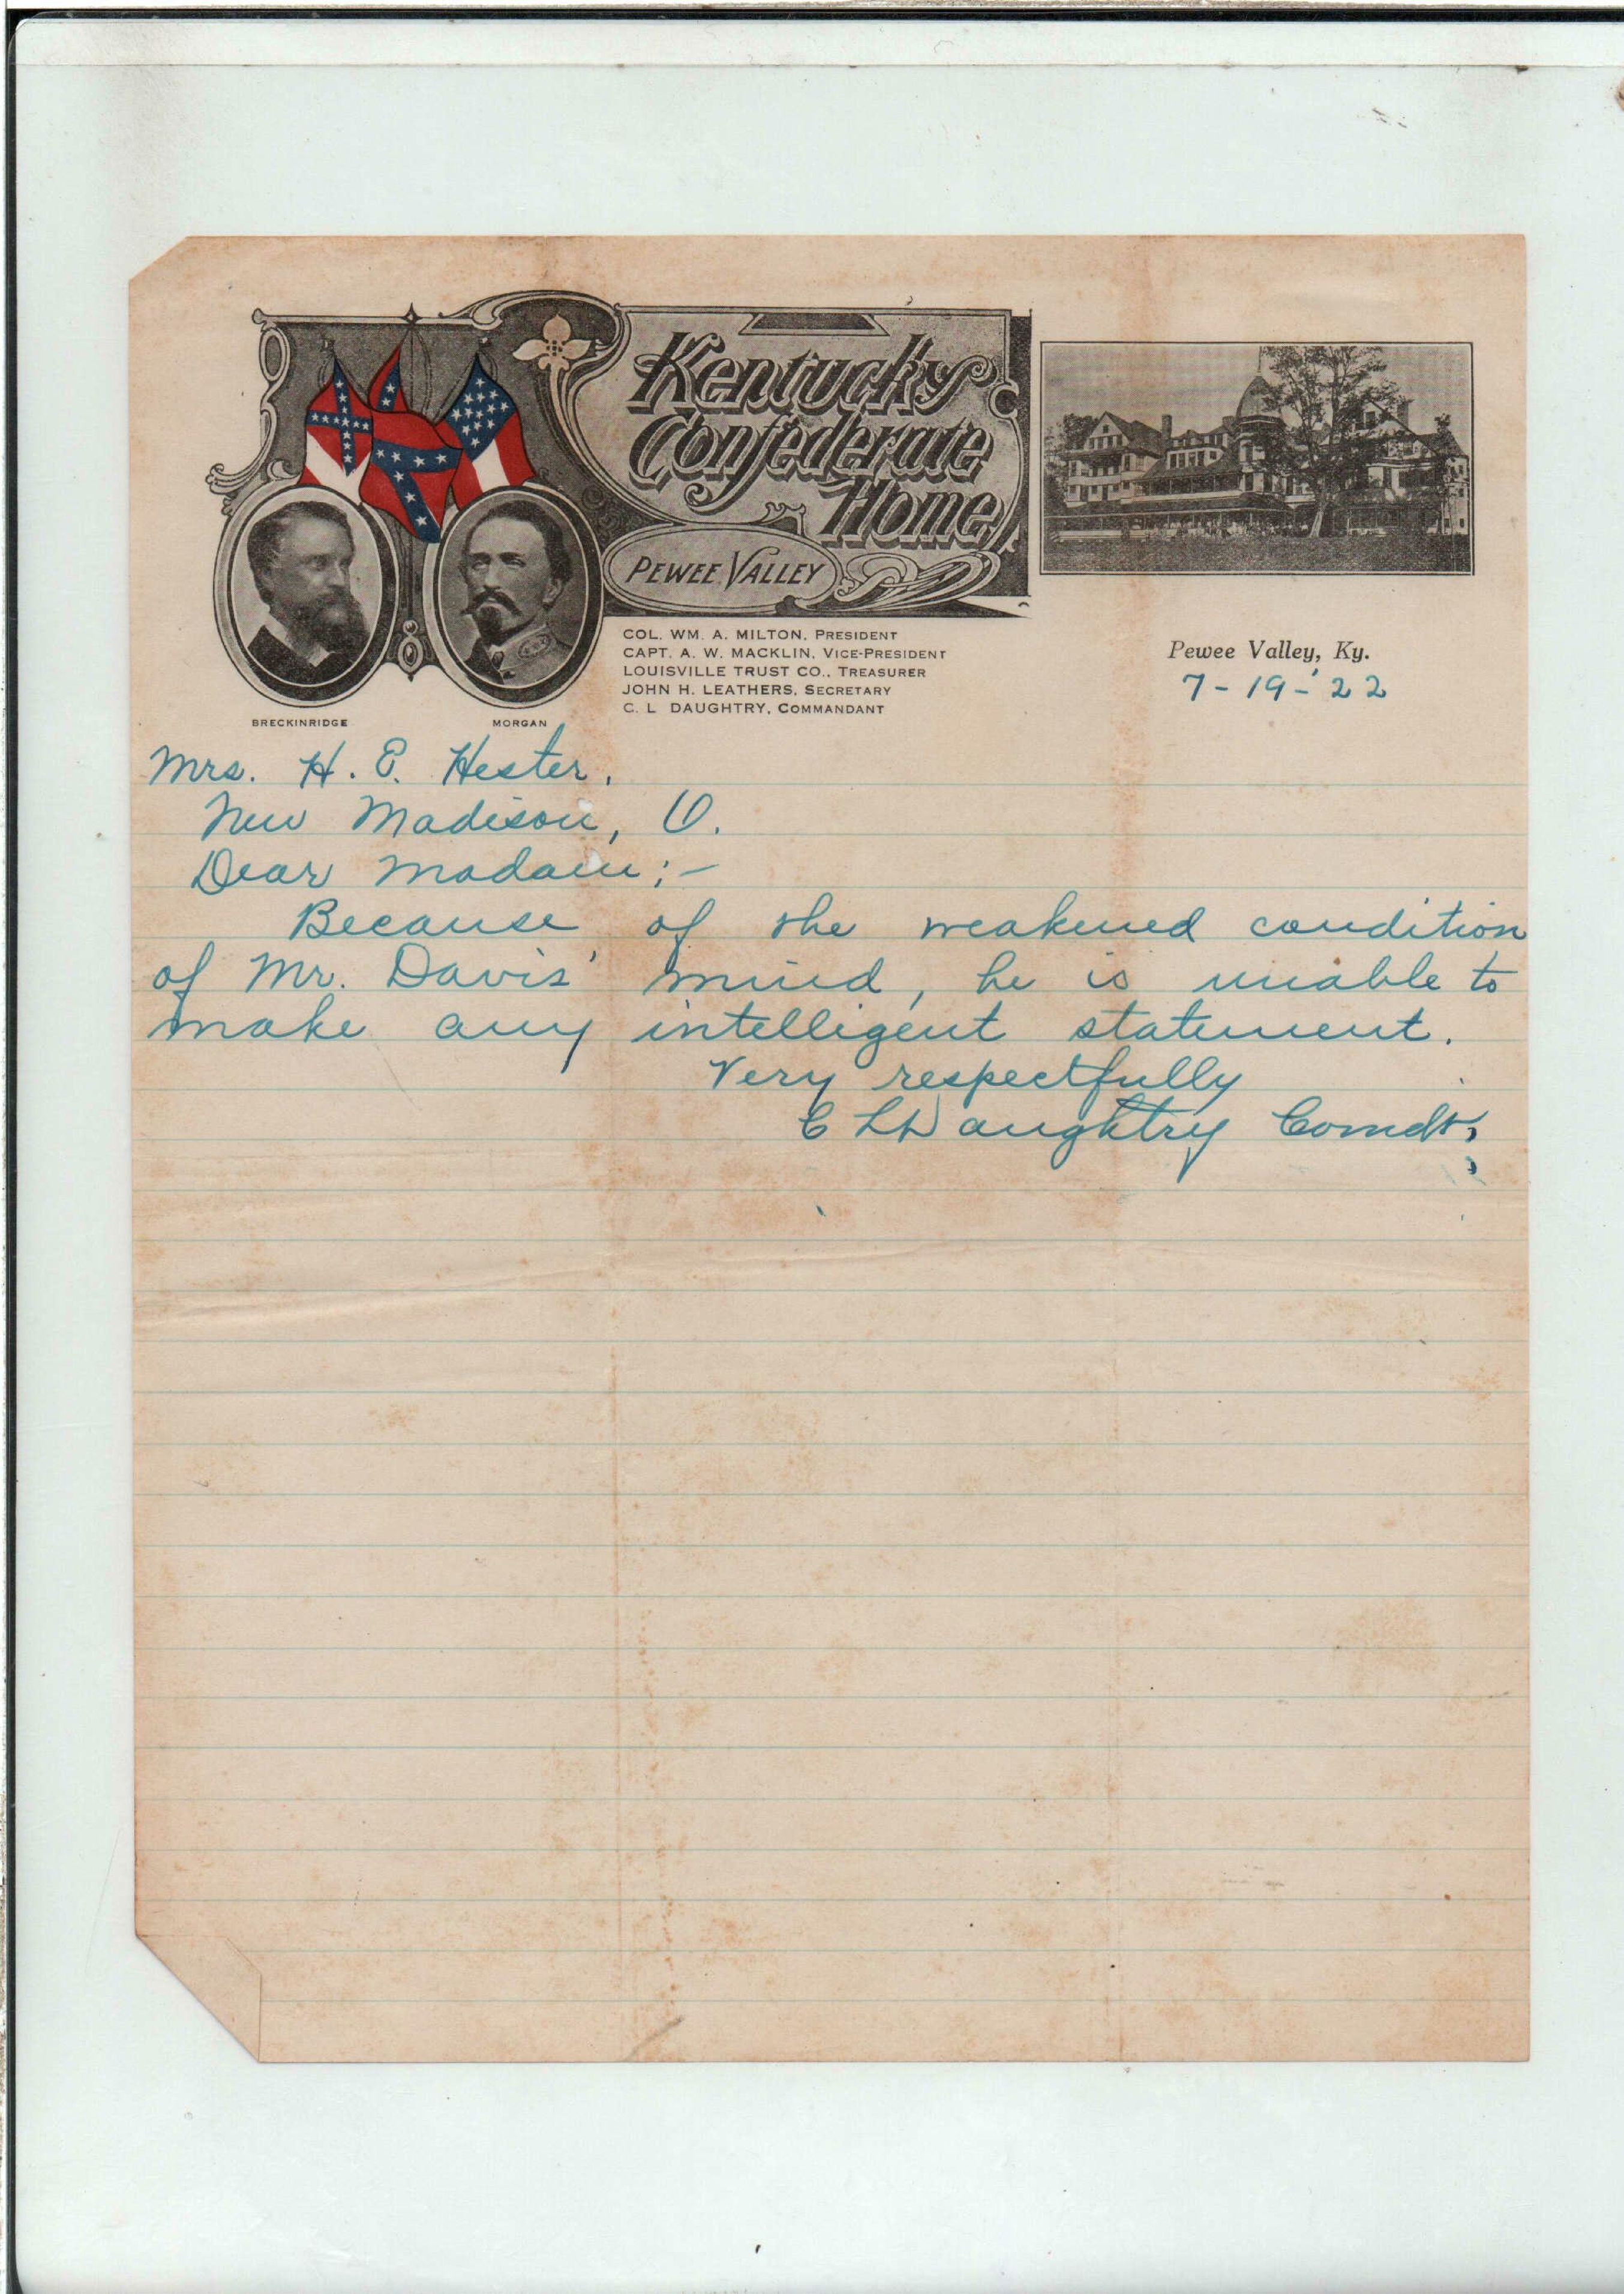 Kentucky
Confederate
Home
PEWEE VALLEY
COL. WM. A. MILTON, PRESIDENT
CAPT. A. W. MACKLIN, VICE-PRESIDENT
LOUISVILLE TRUST CO., TREASURER
JOHN H. LEATHERS, SECRETARY
C. L DAUGHTRY, COMMANDANT
BRECKINRIDGE
MORGAN
Pewee Valley, Ky.
7-19-'22
Mrs. H. E. Hester.
New Madison, O.
Dear Madam;-
Because of the weakened condition
of Mr. Davis' mind, he is unable to
make any intelligent statement.
Very respectfully
C L Daughtry Comdt,